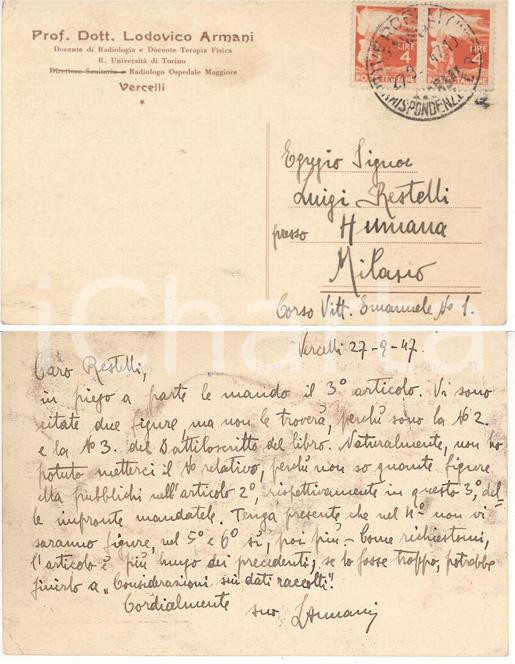 Prof. Dott. Lodovico Armani
Docente di Radiologia e Docente Terapia Fisica
R. Università di Torino
Direttore Sanitario e Radiologo Ospedale Maggiore
Vercelli
LIRE
4
LIRE
4
Egregio Signor
Luigi Restelli
presso Humana
Milano
Corso Vitt. Emanuele No 1.
iCharta
Vercelli 27-9-47.
Caro Restelli,
in piego a parte le mando il 3º articolo. Vi sono
citate due figure, ma non le troverà, perché sono la No 2.
e la No 3. del Dattiloscritto del libro. Naturalmente, non ho
potuto metterci il No relativo, perché non so quante figure
Ella pubblichi nell'articolo 2º, rispettivamente in questo 3º, del=
le impronte mandatele. Tenga presente che nel 4º non vi
saranno figure, nel 5º e 6º sì, poi più – Come richiestomi,
l'articolo è più lungo dei precedenti, se lo fosse troppo, potrebbe
finirlo a "Considerazioni sui dati raccolti".
Cordialmente suo LArmani